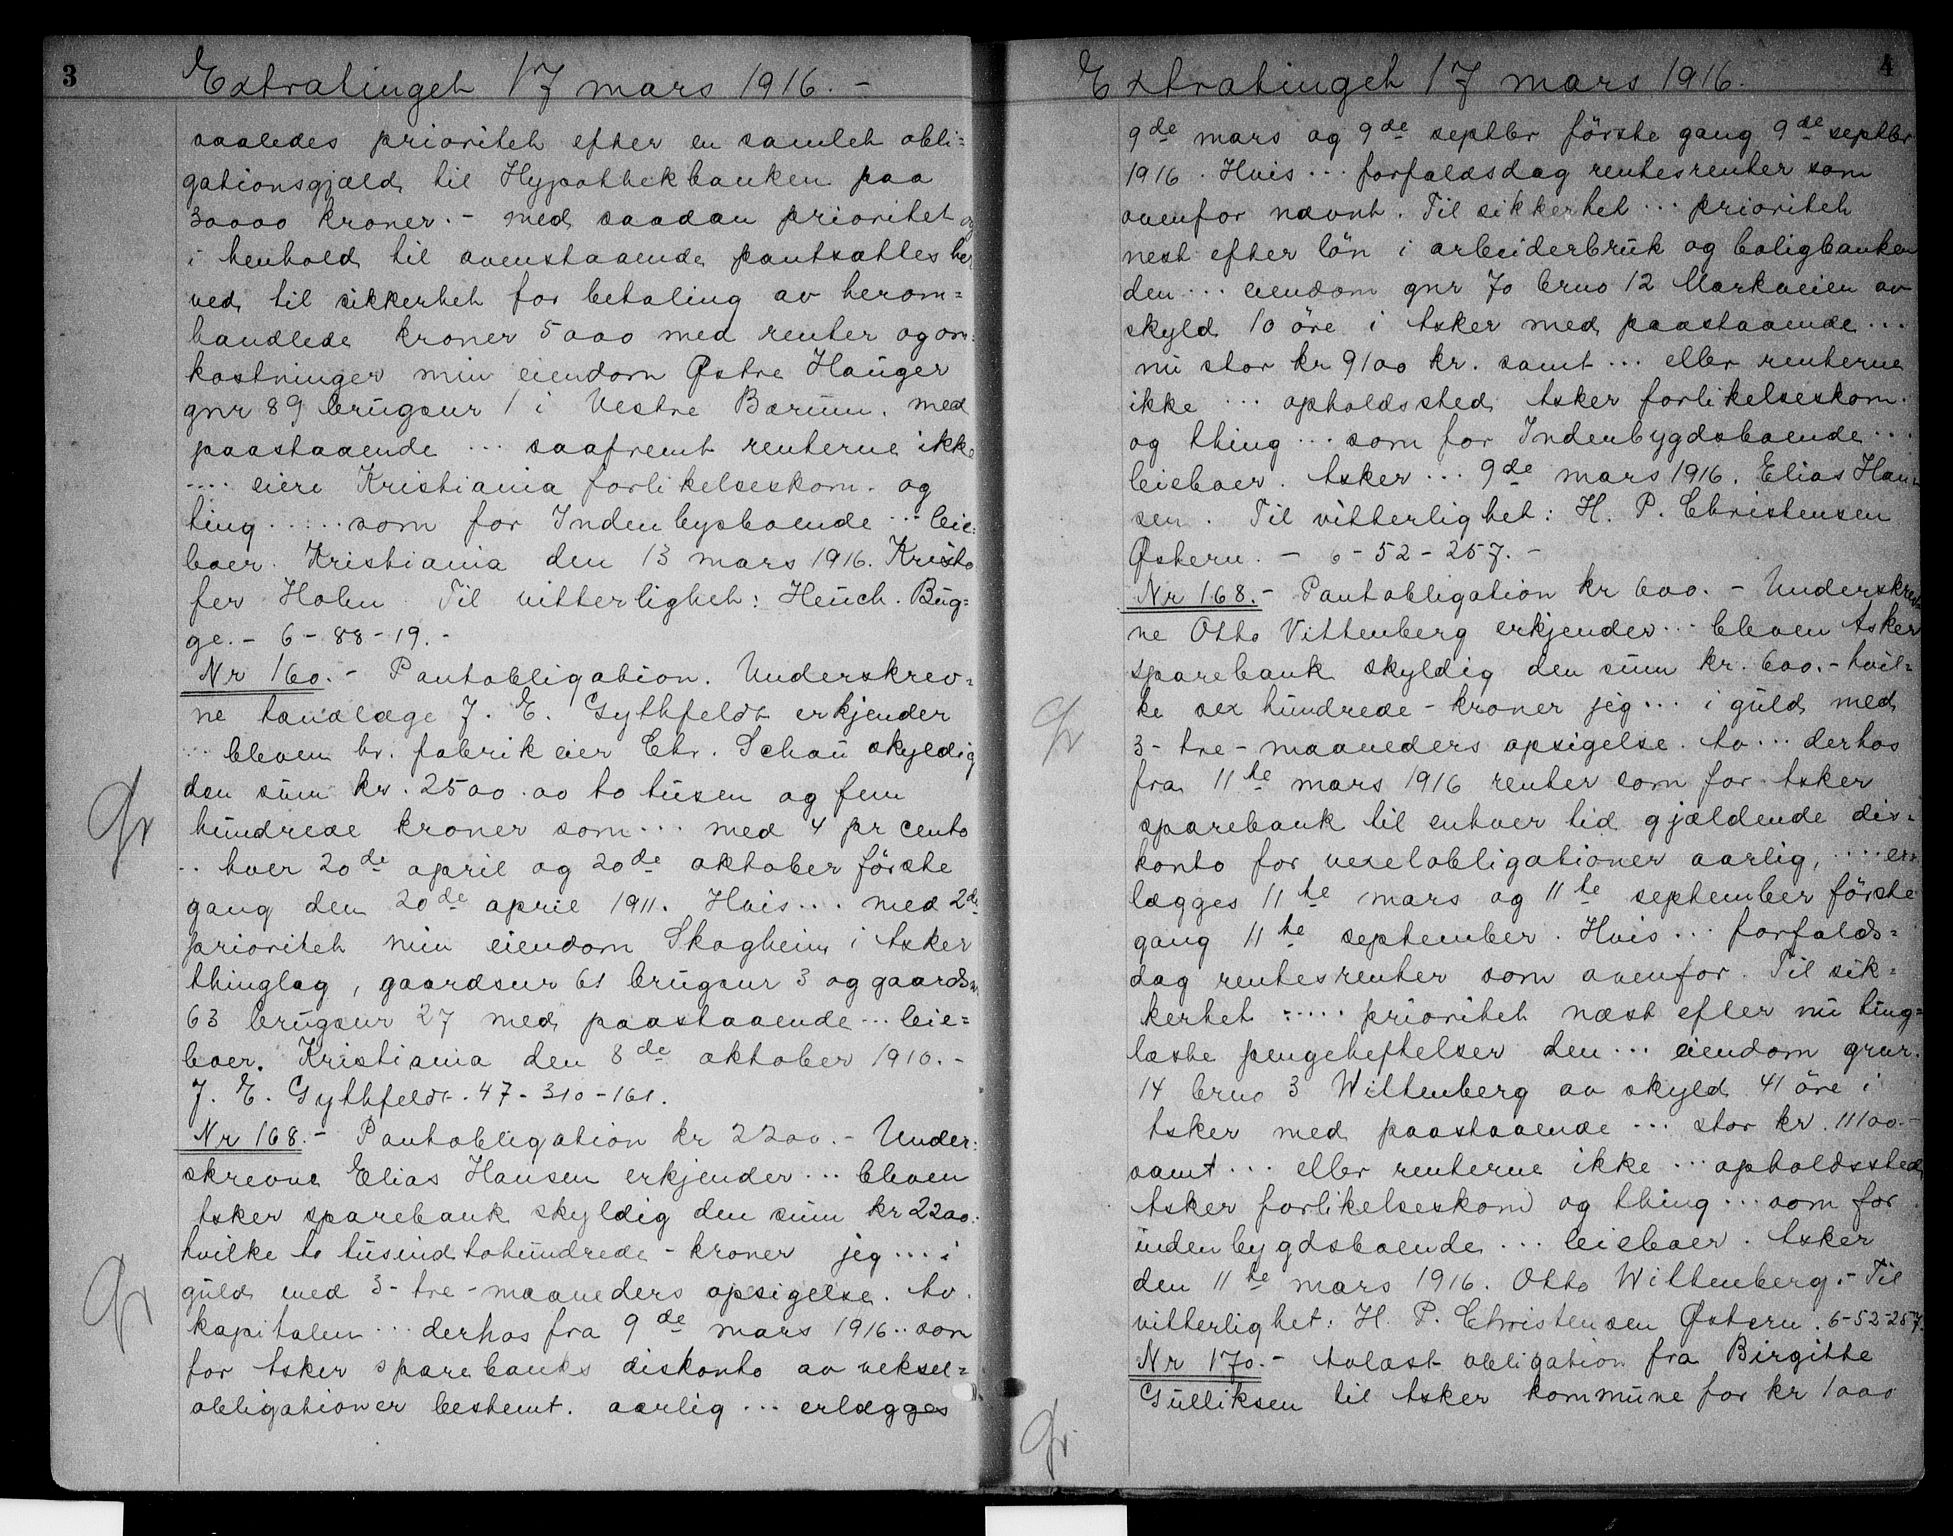 3
Extratinget 17 mars 1916. -
saaledes prioritet efter en samlet obli=
gationsgjæld til Hypothekbanken paa
30000 kroner. - med saadan prioritet og
i henhold til ovenstaaende pantsættes her
ved til sikkerhet for betaling av herom=
handlede kroner 5000 med renter og om=
kostninger min eiendom Østre Hauger
gnr 89 brugsnr 1 i Vestre Bærum. med
paastaaende ... saafremt renterne ikke
.... eiere Kristiania forlikelseskom. og
ting ..... som for Indenbysboende ... leie=
boer. Kristiania den 13 mars 1916. Kristo
fer Holm. Til vitterlighet: Heuch. Bug=
ge. - 6 - 88 - 19. -
Nr 160. - Pantobligation. Underskrev=
ne tandlæge J. E. Gythfeldt erkjender
... bleven hr. fabrikeier Chr. Schou skyldig
den sum kr. 2500.00 to tusen og fem
hundrede kroner som ... med 4 pr cento
.. hver 20de april og 20de oktober första
gang den 20de april 1911. Hvis .... med 2de
prioritet min eiendom Skogheim i Asker
thinglag, gaardsnr 61 brugsnr 3 og gaardsnr
63 brugsnr 27 med paastaaende ... leie=
boer. Kristiania den 8de oktober 1910. -
J. E. Gythfeldt. 47 - 310 - 161.
Nr 168. - Pantobligation kr 2200. - Under=
skrevne Elias Hansen erkjender ... bleven
Asker sparebank skyldig den sum kr 2200.
hvilke to tusind tohundrede - kroner jeg .... i
guld med 3 - tre - maaneders opsigelse. Av
kapitalen ... derhos fra 9de mars 1916 .. som
for Asker sparebanks diskonto av veksel=
obligationer bestemt. aarlig ... erlægges
Gr
Gr
4
Extratinget 17 mars 1916.
9de mars og 9de septbr förste gang 9de septbr
1916. Hvis ... forfaldsdag rentesrenter som
ovenfor nævnt. Til sikkerhet ... prioritet
nest efter lån i arbeiderbruk og boligbanken
den ... eiendom gnr 70 bruo 12 Markveien av
skyld 10 öre i Asker med paastaaende ...
nu stor kr 9100 kr. samt ... eller renterne
ikke ... opholdssted Asker forlikelseskom.
og thing ... som for Indenbygdsboende ...
leieboer. Asker ... 9de mars 1916. Elias Han=
sen. Til vitterlighet: H. P. Christensen
Østern. - 6 - 52 - 257. -
Nr 168. - Pantobligation kr 600. - Underskrev
ne Otto Vittenberg erkjender ... bleven Asker
sparebank skyldig den sum kr. 600. - hvil=
ke sex hundrede - kroner jeg ... i guld med
3 - tre - maaneders opsigelse. Av ... derhos
fra 11te mars 1916 renter som for Asker
sparebank til enhver tid gjældende dis=
konto for vexelobligationer aarlig, .... er=
lægges 11te mars og 11te september förste
gang 11te september. Hvis ... forfalds=
dag rentesrenter som ovenfor. Til sik=
kerhet ..... prioritet næst efter nu ting=
læste pengeheftelser den ... eiendom gnr.
14 bruo 3 Wittenberg av skyld 41 öre i
Asker med paastaaende ... stor kr. 11100. -
samt ... eller renterne ikke ... opholdssted
Asker forlikelseskom og thing ... som for
indenbygdsboende ... leieboer. Asker
den 11te mars 1916. Otto Wittenberg. - Til
vitterlighet: H. P. Christensen Østern. 6-52-257.
Nr 170. - Avlæst obligation fra Birgitte
Gulliksen til Asker kommune for kr 1000
Gr
Gr.